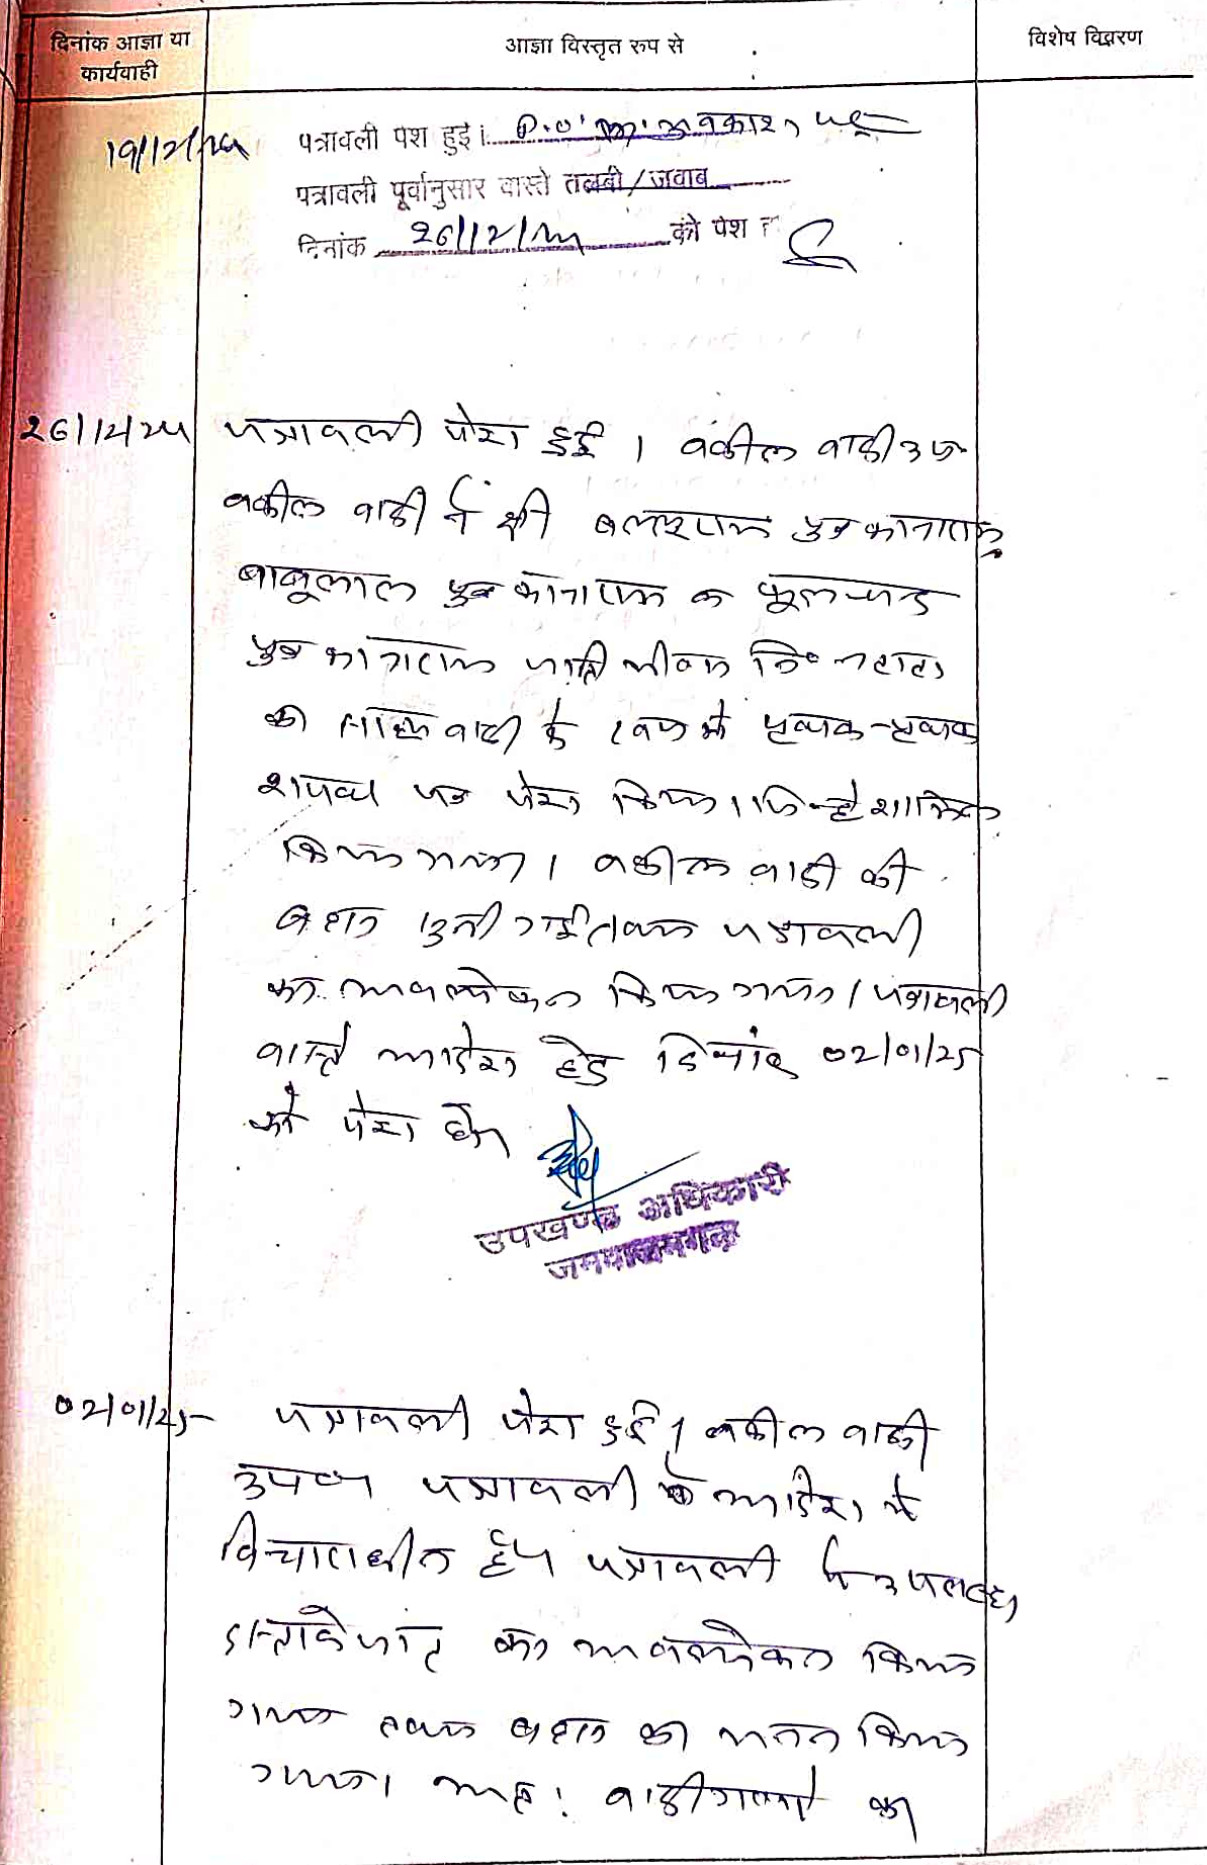 दिनांक आज्ञा या
कार्यवाही
आज्ञा विस्तृत रुप से
विशेष विवरण
19/12/24
पत्रावली पेश हुई। P.O. अवकाश पर
पत्रावली पूर्वानुसार वास्ते तलबी/जवाब
दिनांक 26/12/24 को पेश
26/12/24
पत्रावली पेश हुई । वकील वादी उप
वकील वादी ने श्री पुत्र कानाराम
बाबूलाल पुत्र कानाराम व फूलचन्द
पुत्र कानाराम जाति नि०
को साक्ष्य वादी के रूप में पृथक-पृथक
शपथ पत्र पेश किया। जिन्हे शामिल
किया गया । वकील वादी की
बहस सुनी गई तथा पत्रावली
का अवलोकन किया गया। पत्रावली
वास्ते आदेश हेतु दिनांक 02/01/25
को पेश हो।
उपखण्ड अधिकारी
02/01/25
पत्रावली पेश हुई। वकील वादी
उपo पत्रावली आदेश में
विचाराधीन है। पत्रावली में उपलब्ध
दस्तावेजात का अवलोकन किया
गया तथा बहस का मनन किया
गया। अतः वादीगणो का